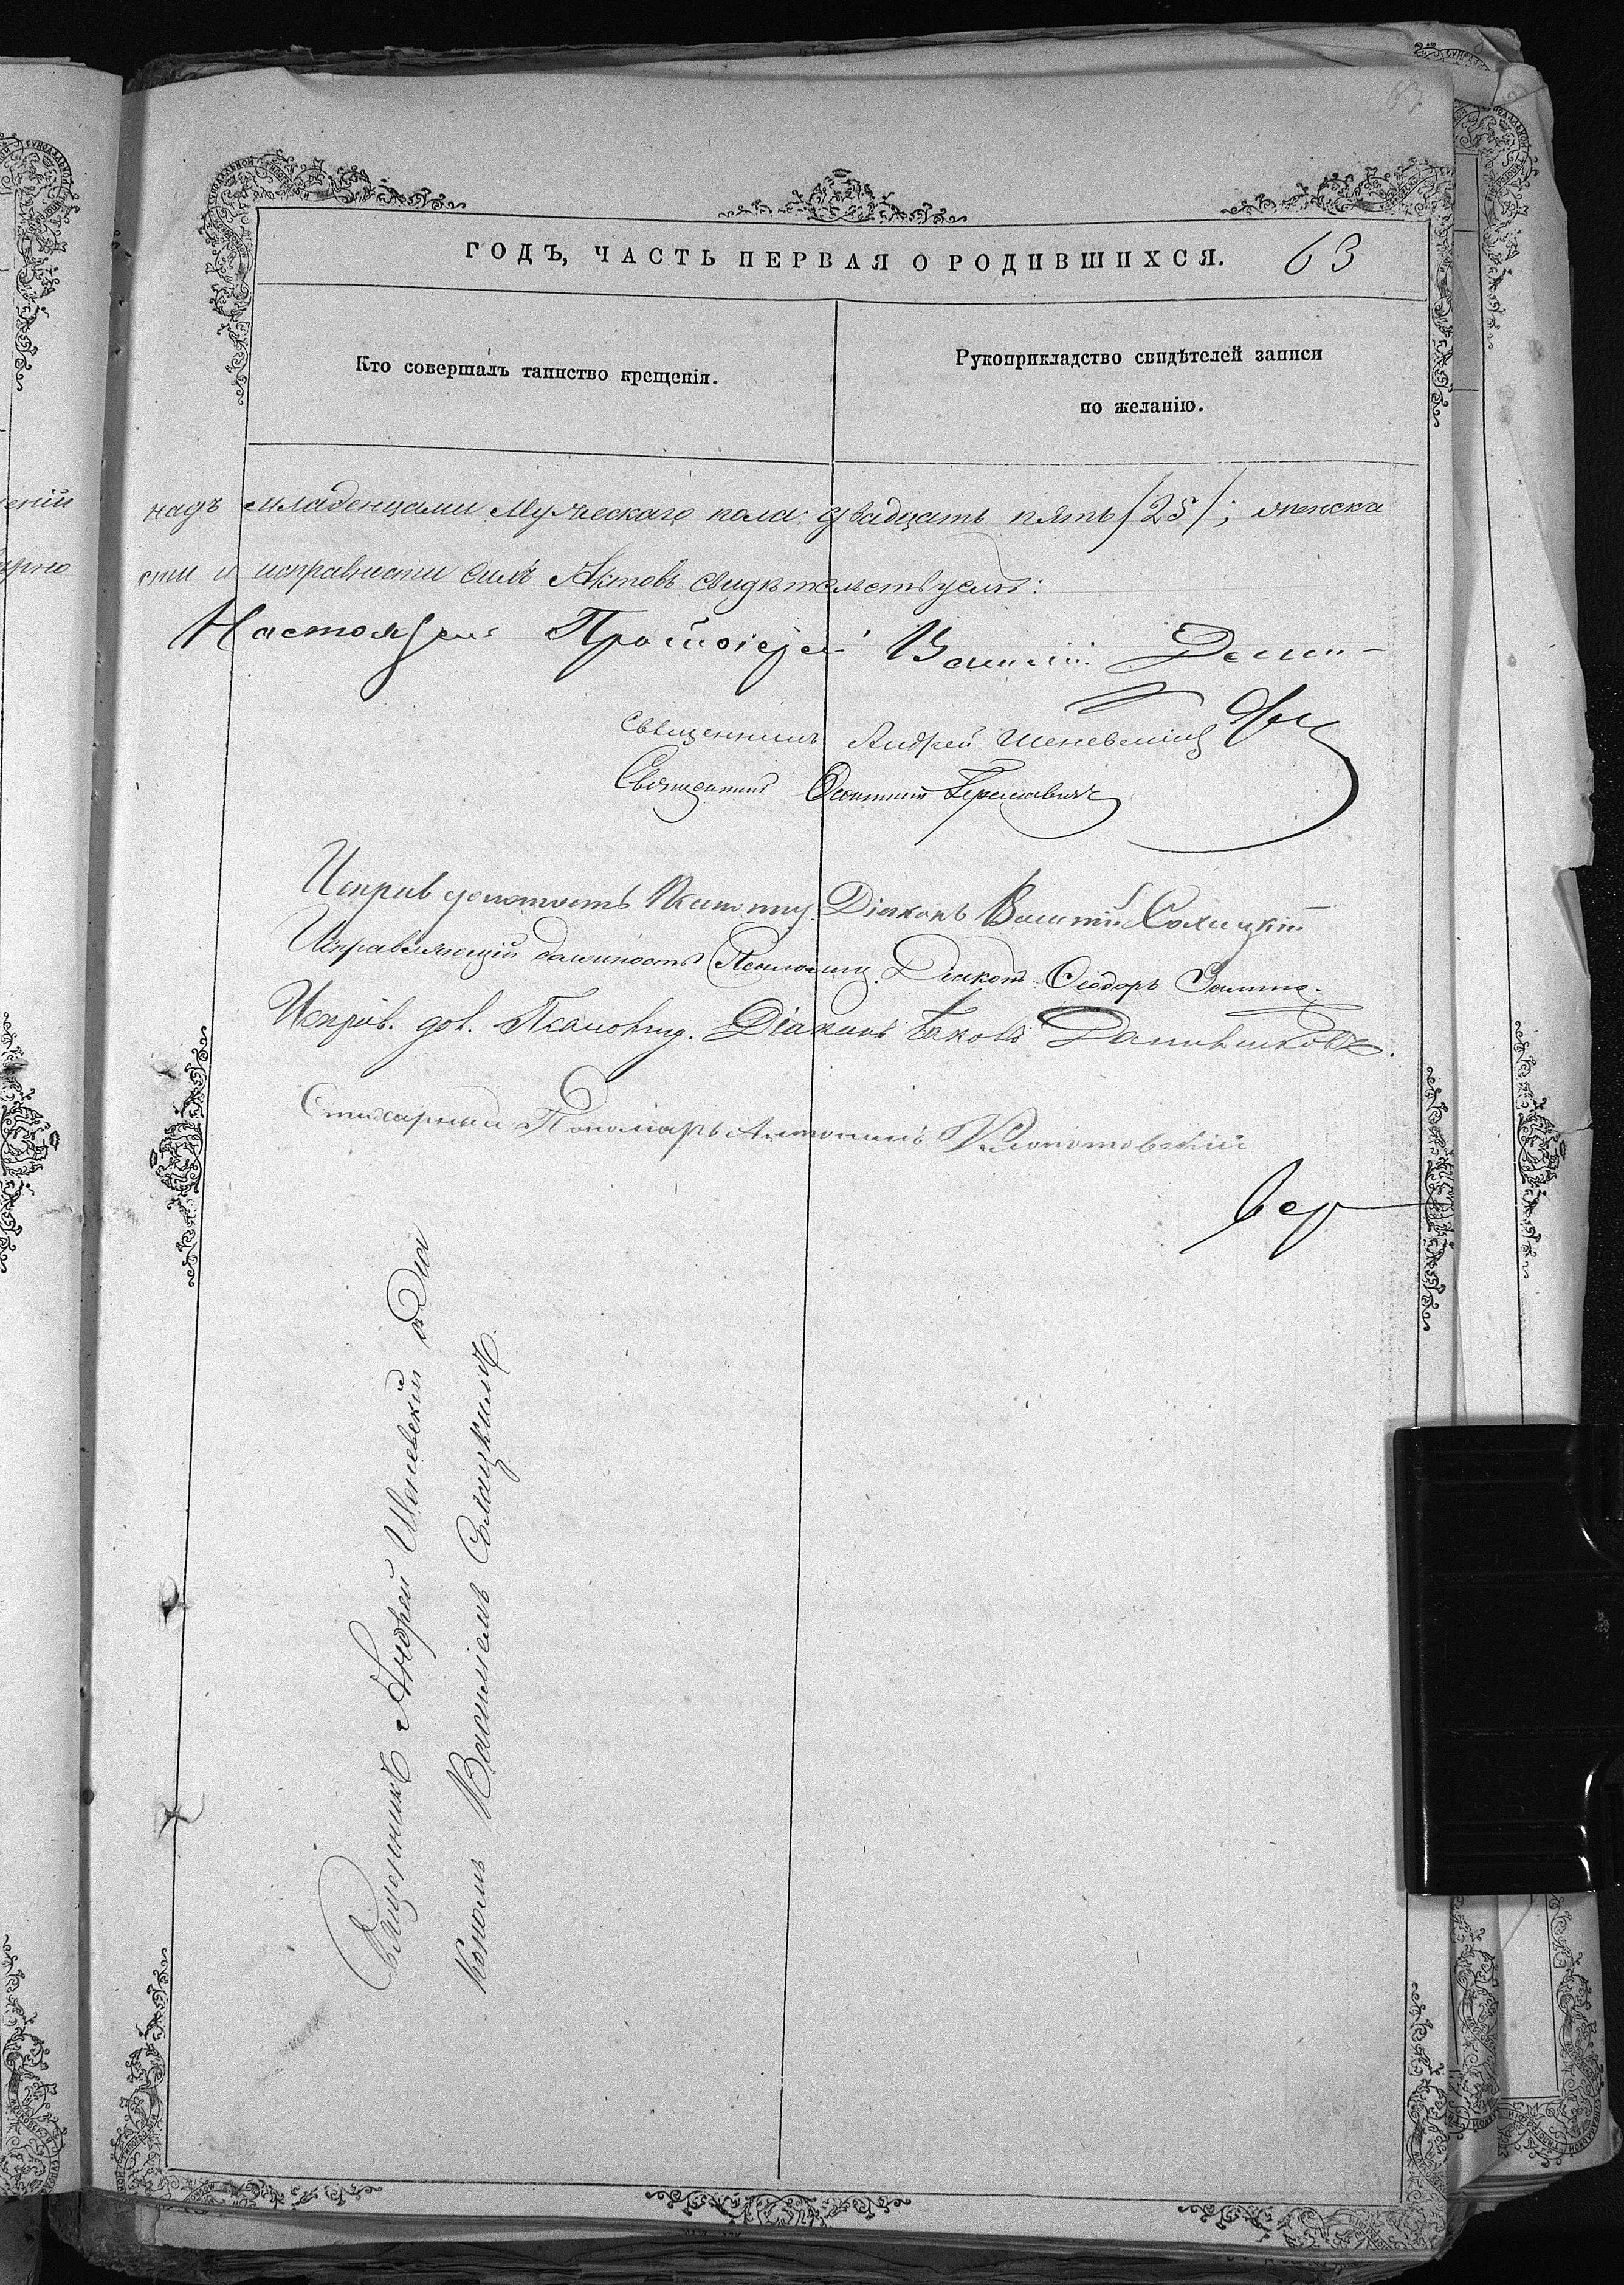 63
ГОДЪ, ЧАСТЬ ПЕРВАЯ О РОДИВШИХСЯ. 63
Кто совершалъ таинство крещенія.
Рукоприкладство свидѣтелей записи
по желанію.
надъ младенцами мужескаго пола: двадцать пять /25/; женска
сти и исправности сихъ Актовъ свидѣтельствуемъ:
Настоятель Протоіерей Василій
Священникъ Андрей Шеневскій
Священникъ
Исправ должность Діаконъ Василій Солицкій
Исправляющій должность Псаломщ. Діаконъ Ѳеодоръ
Исправ. дол. Псаломщ. Діаконъ Іаковъ Данишковъ.
Стихарный Пономарь Антонинъ Клопотовскій
Священникъ Андрей Шеневскій съ Діа
кономъ Василіемъ Солицкимъ.